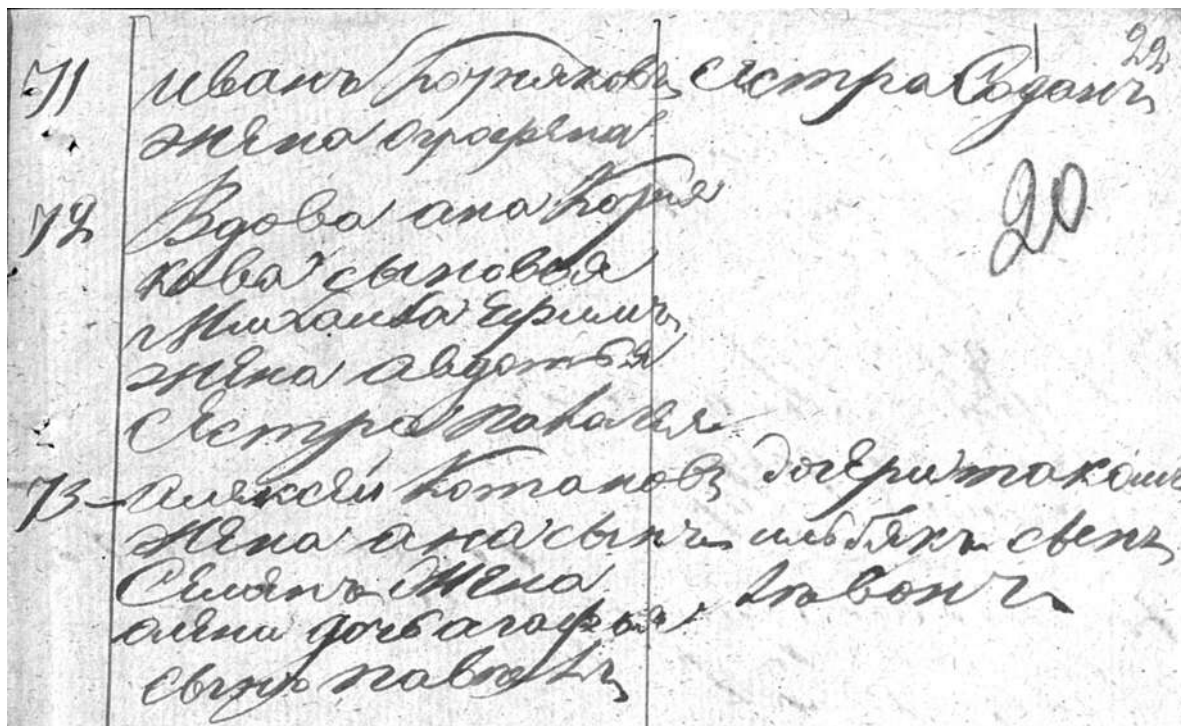 22
71 Иванъ Корняковъ сестра Богданъ
жена огрофена
20
72 Вдова ана Корня
кова сыновья
Михаила Ефимъ
жена авдотья
Сестра наталья
73 – алексей Котановъ дочери
жена ана сынъ сынъ
Семенъ жена Левонъ
олена дочь агофья
сынъ павелъ